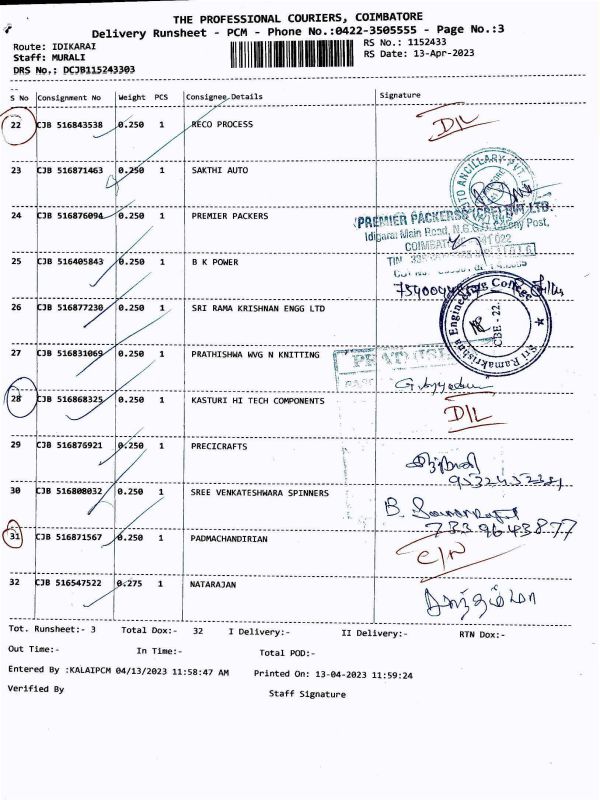 THE PROFESSIONAL COURIERS, COIMBATORE
Delivery Runsheet - PCM - Phone No.:0422-3505555 - Page No.:3
Route: IDIKARAI
RS No.: 1152433
Staff: MURALI
RS Date: 13-Apr-2023
DRS No.: DCJB115243303
S No Consignment No Weight PCS Consignee Details Signature
22 CJB 516843538 0.250 1 RECO PROCESS D/L
23 CJB 516871463 0.250 1 SAKTHI AUTO
24 CJB 516876094 0.250 1 PREMIER PACKERS
PREMIER PACKERS
Idigarai Main Road, N.G.G.O. Colony Post,
25 CJB 516405843 0.250 1 B K POWER
26 CJB 516877230 0.250 1 SRI RAMA KRISHNAN ENGG LTD
Sri Ramakrishna Engineering College
CBE - 22
27 CJB 516831069 0.250 1 PRATHISHWA WVG N KNITTING
28 CJB 516868325 0.250 1 KASTURI HI TECH COMPONENTS D/L
29 CJB 516876921 0.250 1 PRECICRAFTS
30 CJB 516808032 0.250 1 SREE VENKATESHWARA SPINNERS
7339643877
31 CJB 516871567 0.250 1 PADMACHANDIRIAN C/N
32 CJB 516547522 0.275 1 NATARAJAN
Tot. Runsheet:- 3 Total Dox:- 32 I Delivery:- II Delivery:- RTN Dox:-
Out Time:- In Time:- Total POD:-
Entered By :KALAIPCM 04/13/2023 11:58:47 AM Printed On: 13-04-2023 11:59:24
Verified By Staff Signature